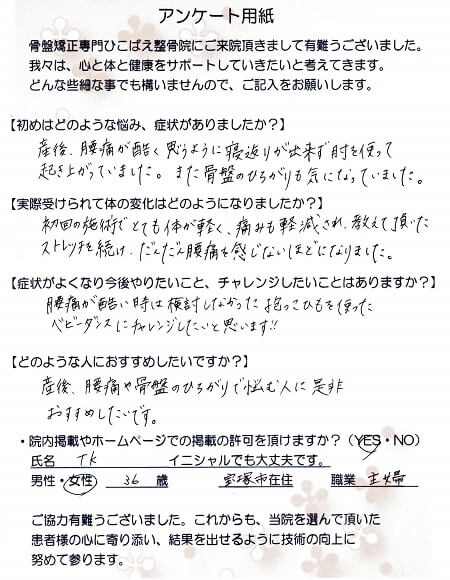 アンケート用紙
骨盤矯正専門ひこばえ整骨院にご来院頂きまして有難うございました。
我々は、心と体と健康をサポートしていきたいと考えてきます。
どんな些細な事でも構いませんので、ご記入をお願いします。
【初めはどのような悩み、症状がありましたか？】
産後、腰痛が酷く思うように寝返りが出来ず肘を使って
起き上がっていました。また骨盤のひろがりも気になっていました。
【実際受けられて体の変化はどのようになりましたか？】
初回の施術でとても体が軽く、痛みも軽減され、教えて頂いた
ストレッチを続け、だんだん腰痛を感じないほどになりました。
【症状がよくなり今後やりたいこと、チャレンジしたいことはありますか？】
腰痛が酷い時は検討しなかった抱っこひもを使った
ベビーダンスにチャレンジしたいと思います!!
【どのような人におすすめしたいですか？】
産後、腰痛や骨盤のひろがりで悩む人に是非
おすすめしたいです。
・院内掲載やホームページでの掲載の許可を頂けますか？（YES・NO）
氏名 TK イニシャルでも大丈夫です。
男性・女性 36 歳 宝塚市在住 職業 主婦
ご協力有難うございました。これからも、当院を選んで頂いた
患者様の心に寄り添い、結果を出せるように技術の向上に
努めて参ります。